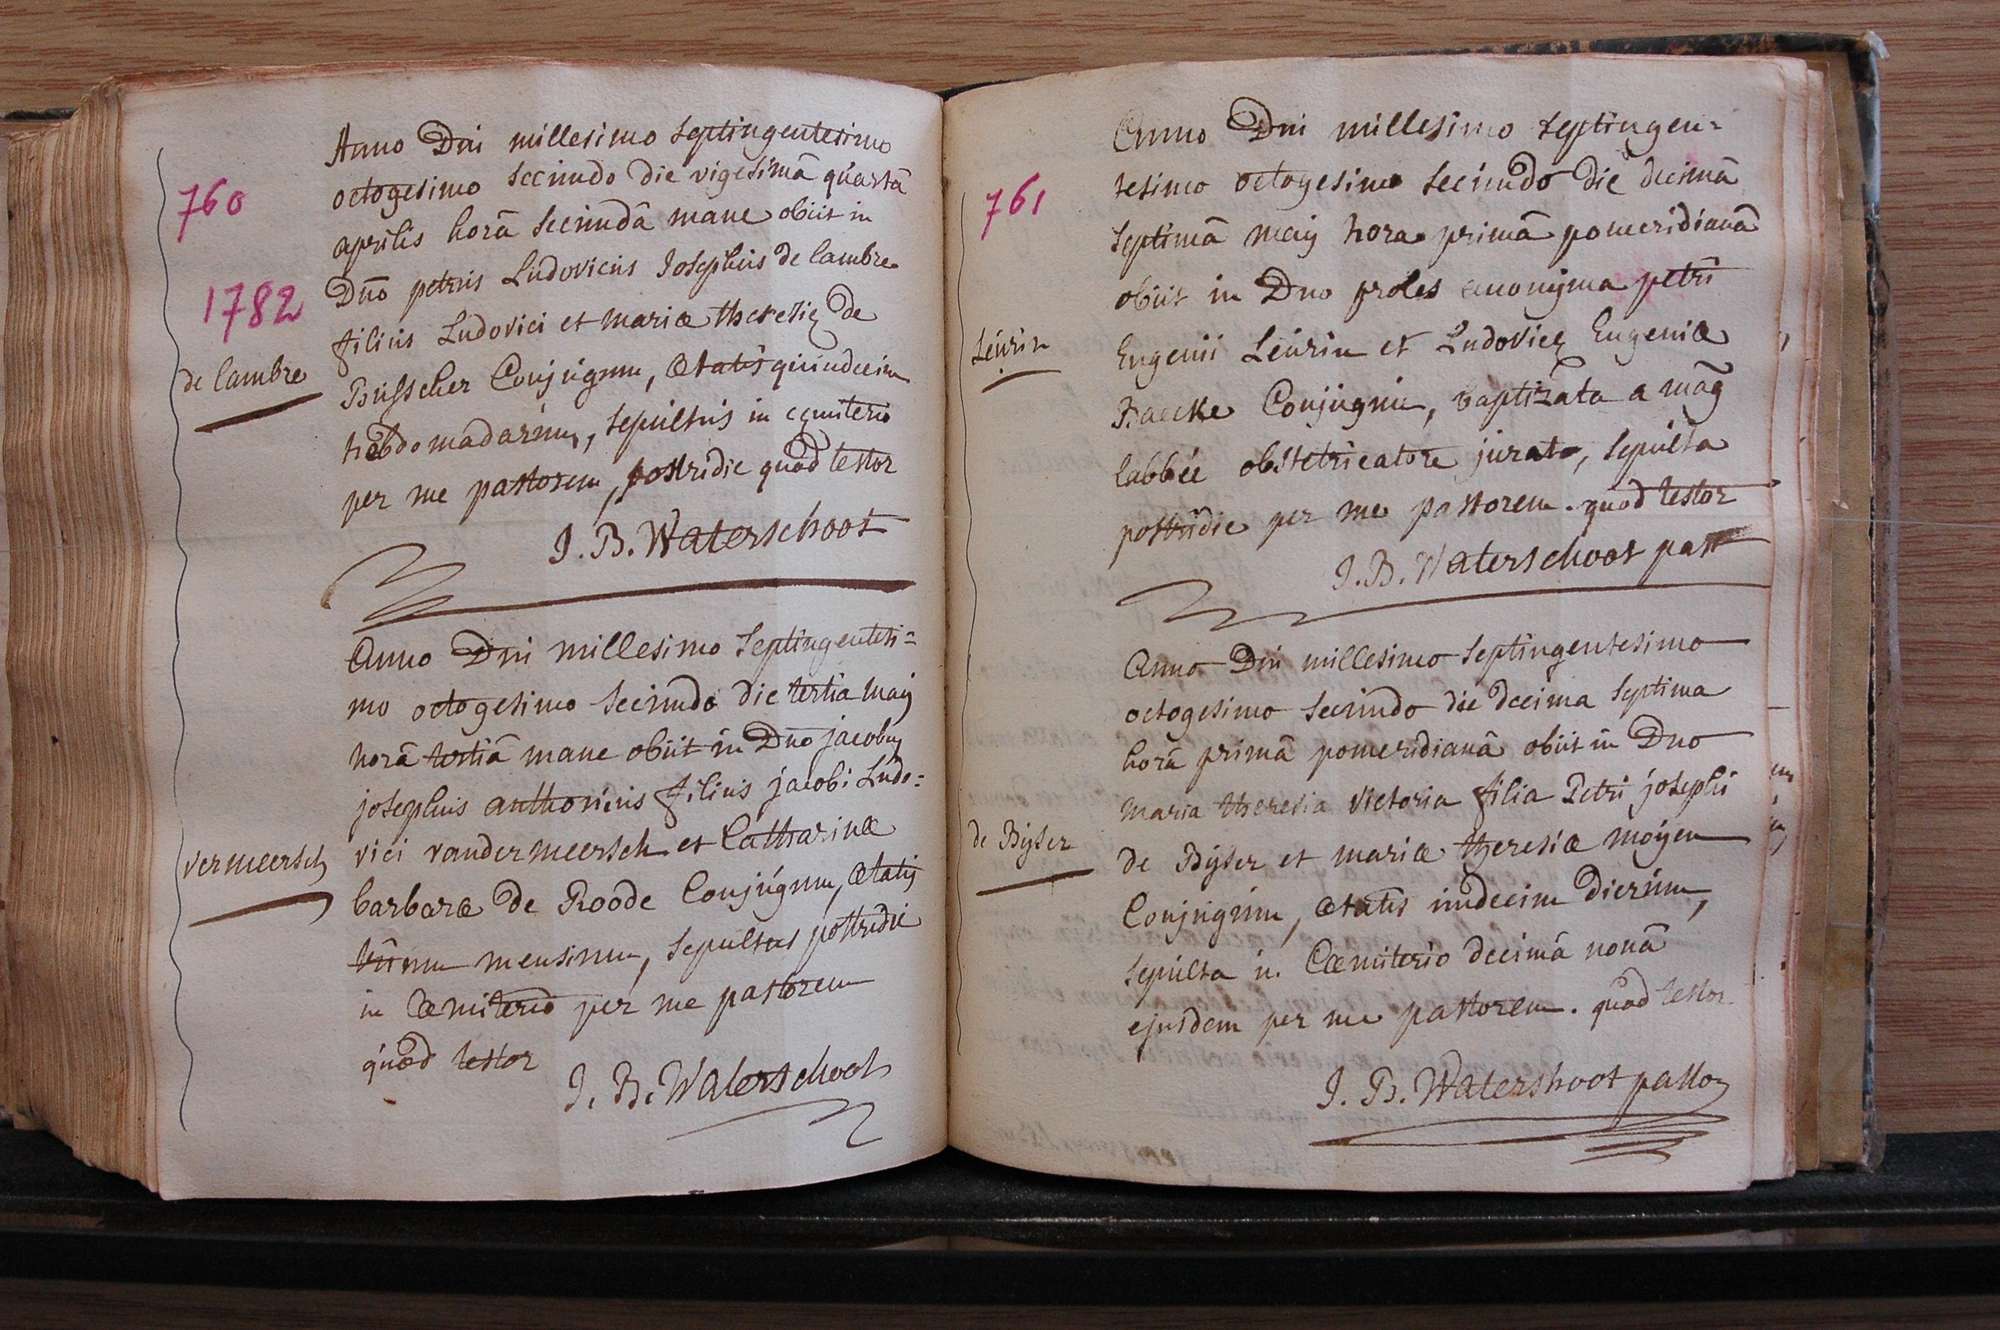 760
1782
Anno Dni millesimo septingentesimo
octogesimo secundo die vigesimâ quartâ
aprilis horâ secundâ mane obiit in
Dno petrus Ludovicus Josephus de lambre
filius Ludovici et mariæ theresiæ de
de lambre
Busscher Conjugum, ætatis quindecim
hebdomadarum, sepultus in cemiterio
per me pastorem, postridie quod testor
J. B. Waterschoot
Anno Dni millesimo septingentesi=
mo octogesimo secundo die tertia maij
horâ tertiâ mane obiit in Dno jacobus
josephus anthonius filius jacobi Ludo=
vermeersch
vici vandermeersch et Catharinæ
barbaræ de Roode Conjugum, ætatis
trium mensium, sepultus postridie
in Cæmiterio per me pastorem
quod testor
J. B. Waterschoot
761
Anno Dni millesimo septingen=
tesimo octogesimo secundo die decimâ
septimâ maij hora primâ pomeridianâ
obiit in Dno proles anonijma petri
Leurin
Eugenii Leurin et Ludovicæ Eugeniæ
Haecke Conjugum, baptizata a mag
labbée obstetricatore jurato, sepulta
postridie per me pastorem. quod testor
J. B. Waterschoot past
Anno Dni millesimo septingentesimo
octogesimo secundo die decima septima
horâ primâ pomeridianâ obiit in Dno
maria theresia victoria filia Petri josephi
de Bijser
de Bijser et mariæ theresiæ moyen
Conjugum, ætatis undecim dierum,
sepulta in Cæmiterio decimâ nonâ
ejusdem per me pastorem. quod testor
J. B. Watershoot pastor